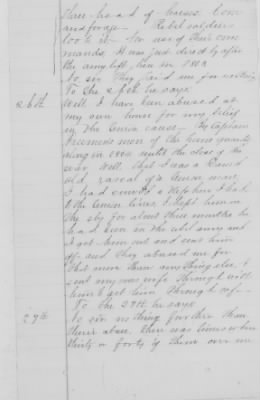 three head of horses. Corn
and forage. Rebel soldiers
took it for use of their com
mands. It was just directly after
the army left, here in 1863
No sir They paid me for nothing
To the 26th he says
26th Well I have been abused at
my own house for my belief
in the Union cause. By Captain
men of the home guard
along in 1864 until the close of the
war. Well, said I was a Damd
old rascal of a Union man.
I had a Stepson I had
to the Union lines. I kept him on
the sly for about three months he
had been in the rebel army and
I got him out and sent him
off, and they abused me for
that more than anything else. I
sent my own wife through with
him to get him through safe.
To the 27th he says
27th No sir nothing further than
their abuse. There was times when
thirty or forty of them over me